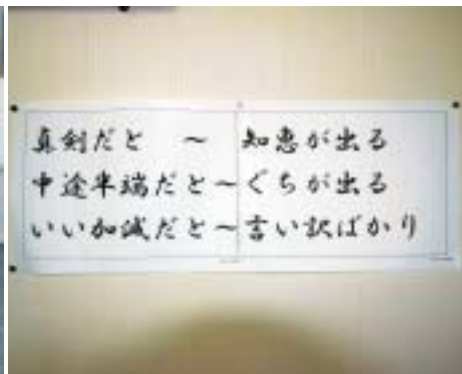 真剣だと ～ 知恵が出る
中途半端だと～ぐちが出る
いい加減だと～言い訳ばかり